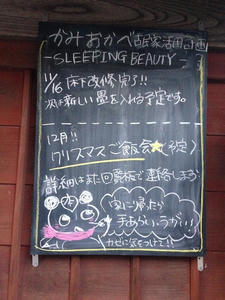 かみおかべ古民家活用計画
-SLEEPING BEAUTY-
11/16 床下改修完了!!
次は新しい畳を入れる予定です。
12月!!
クリスマスご飯会★(予定)
詳細はまた回覧板で連絡しまーす
家に帰ったら
手あらい、うがい!
カゼに気をつけて!!